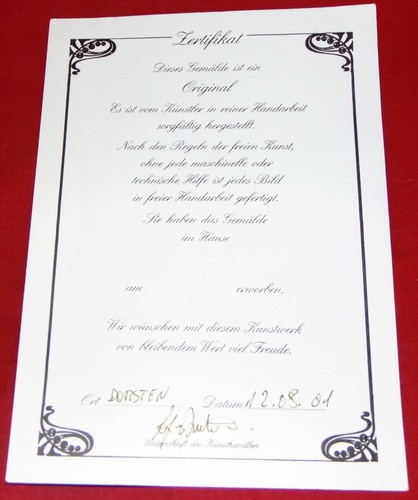 Zertifikat
Dieses Gemälde ist ein
Original
Es ist vom Künstler in reiner Handarbeit
sorgfältig hergestellt.
Nach den Regeln der freien Kunst,
ohne jede maschinelle oder
technische Hilfe ist jedes Bild
in freier Handarbeit gefertigt.
Sie haben das Gemälde
im Hause
am erworben.
Wir wünschen mit diesem Kunstwerk
von bleibendem Wert viel Freude.
Ort DORSTEN Datum 12.08.01
Unterschrift des Kunsthändlers